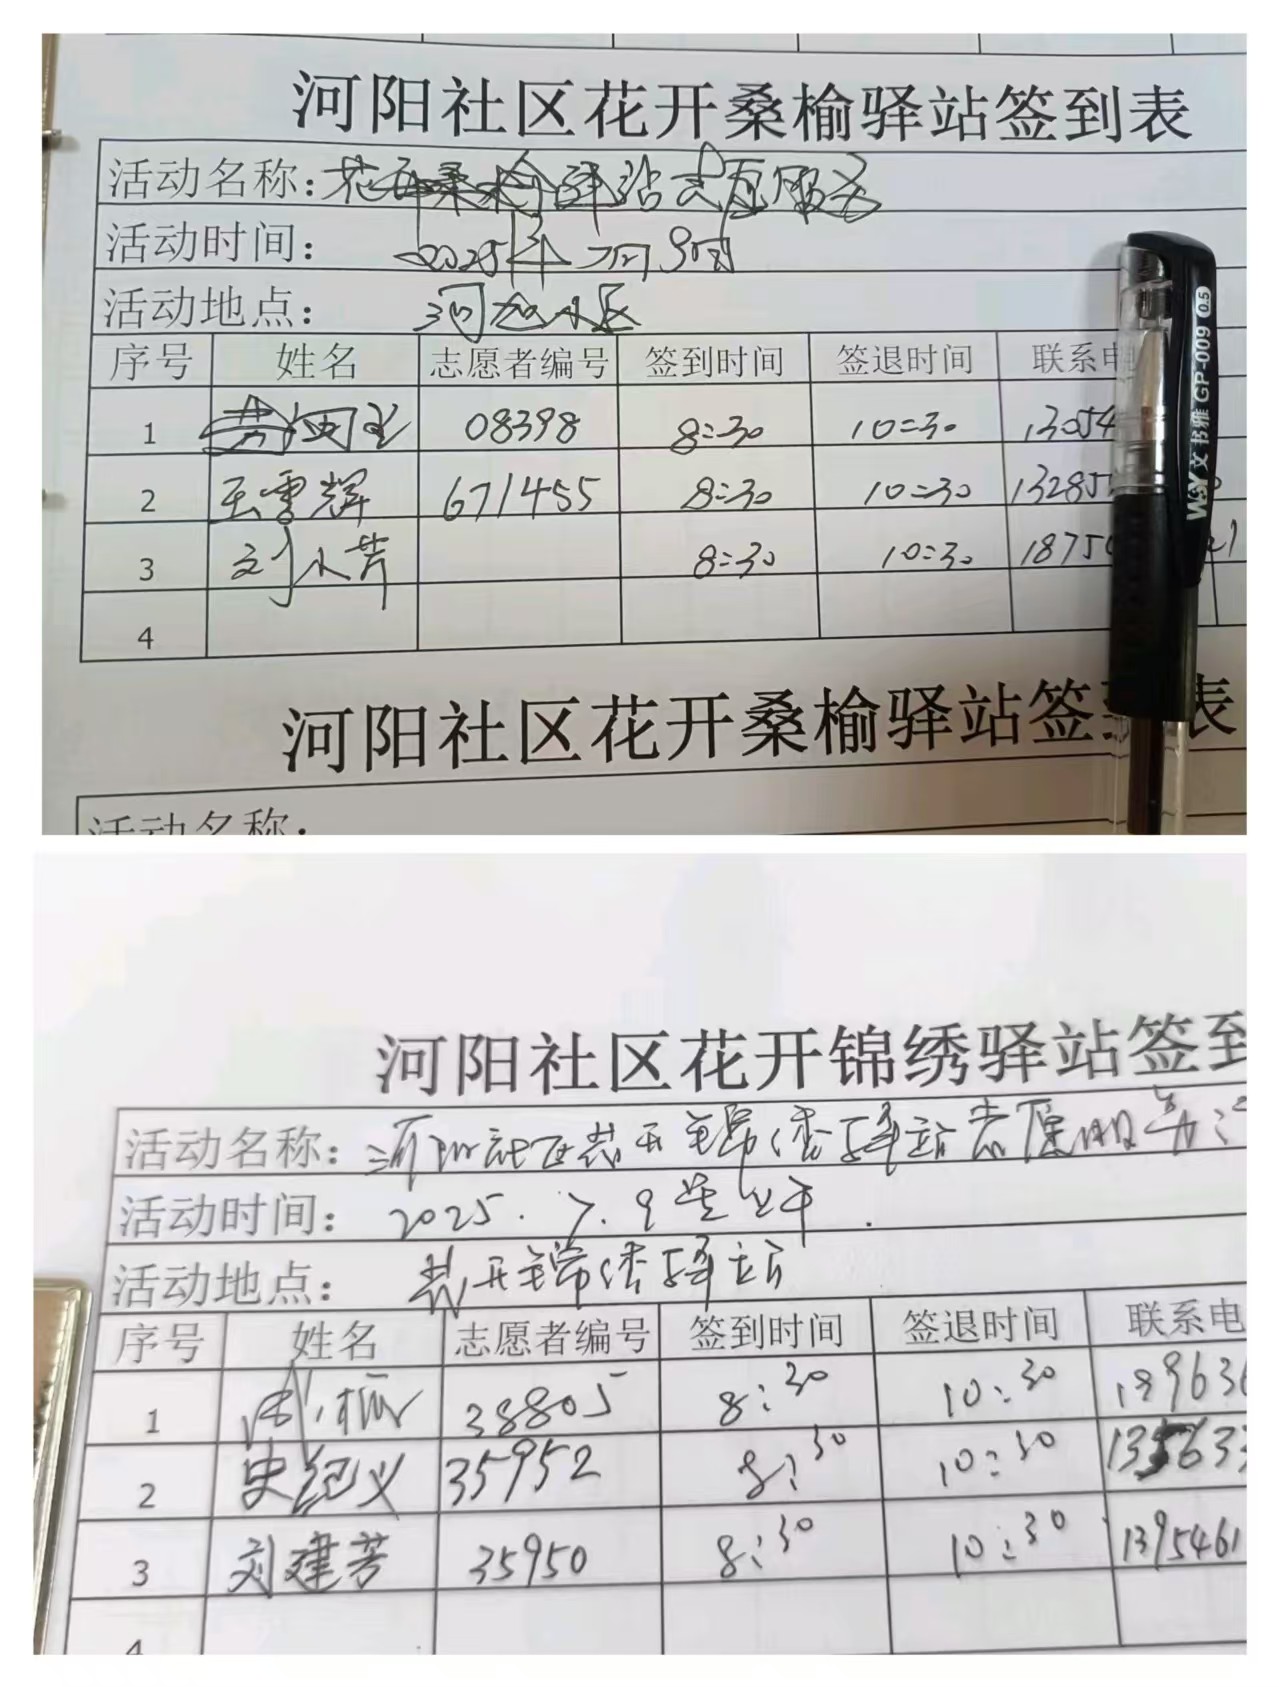 河阳社区花开桑榆驿站签到表
活动名称：花开桑榆驿站志愿服务
活动时间： 2025年7月9日
活动地点： 河阳小区
序号 姓名 志愿者编号 签到时间 签退时间 联系电
1 08398 8:30 10:30 13054
2 王雪辉 671455 8:30 10:30 13285
3 刘小芹 8:30 10:30 1875
4
W&Y 文书雅 GP-009 0.5
河阳社区花开桑榆驿站签到表
活动名称：
河阳社区花开锦绣驿站签到
活动名称：河阳社区花开锦绣驿站志愿服务活
活动时间： 2025.7.9星上午.
活动地点： 花开锦绣驿站
序号 姓名 志愿者编号 签到时间 签退时间 联系电
1 38805 8:30 10:30
2 史纪义 35952 8:30 10:30 135633
3 刘建芳 35950 8:30 10:30 1395461
4